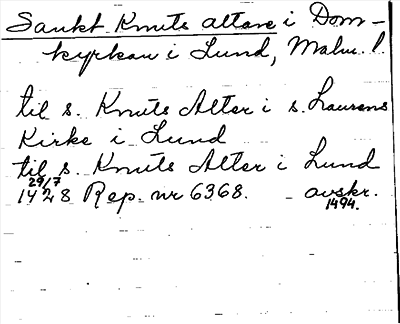 Sankt Knuts altare i Dom-
kyrkan i Lund, Malm. l.
til s. Knuts Alter i s. Laurens
Kirke i Lund
til s. Knuts Alter i Lund
29/7
1428 Rep. nr 6368. avskr.
1494.